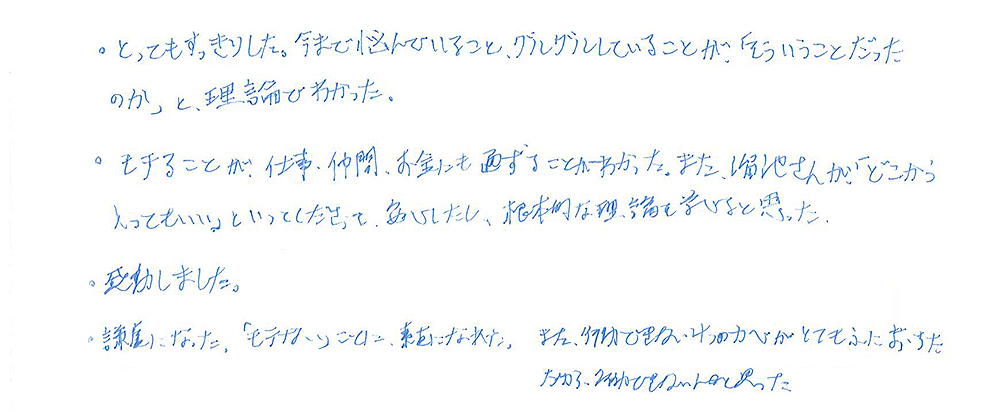 ・とってもすっきりした。今まで悩んでいること、グルグルしていることが、「そういうことだった
のか」と、理論でわかった。
・モテることが、仕事、仲間、お金にも通ずることがわかった。また、溜池さんが、「どこから
入ってもいい」といってくださって、安心したし、根本的な理論を学べると思った。
・感動しました。
・謙虚になった。「モテない」ことに、素直になれた。 また、行動できない4つのカベがとてもふにおちた